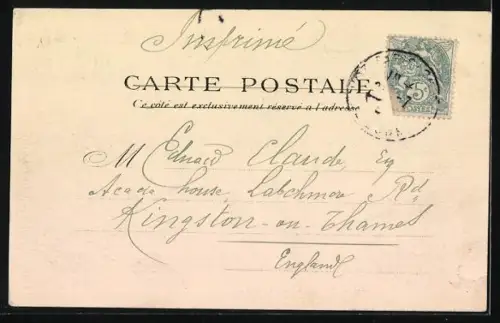 Imprimé
CARTE POSTALE
Ce côté est exclusivement réservé à l'adresse
M Edward Claude, Esq
Acacia house, Latchmere Rd
Kingston-on-Thames
England
5